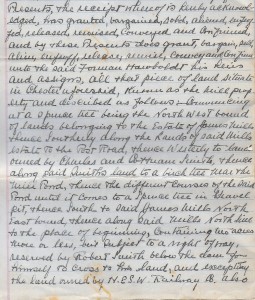 Presents, the receipt whereof is hereby acknowl
edged, has granted, bargained, sold, aliened, enfeof
fed, released, remised, Conveyed and Confirmed,
and by these Presents does grant, bargain, sell,
alien, enfeoff, release, remise, Convey and Confirm
unto the said Forman Hawboldt his heirs
and assigns, all that piece of land situate
in Chester aforesaid, Known as the mill prop
erty and discribed as follows: Commencing
at a Spruce tree being the North West bound
of lands belonging to the Estate of James Mills
thence Southerly along the lands of said Mills
Estate to the Post Road, thence Westerly to land
owned by Charles and Smith, thence
along said Smiths land to a birch tree near the
Mill Pond, thence the different courses of the said
Pond until it comes to a Spruce tree in Gravel
pit, thence South to said James Mills North
East bound, thence along said Mills North line
to the place of beginning, Containing two acres
more or less, but Subject to a right of way,
reserved by Robert Smith below the dam for
himself to cross to his land, and excepting
the land owned by N.S.S.W. Railway Co. also